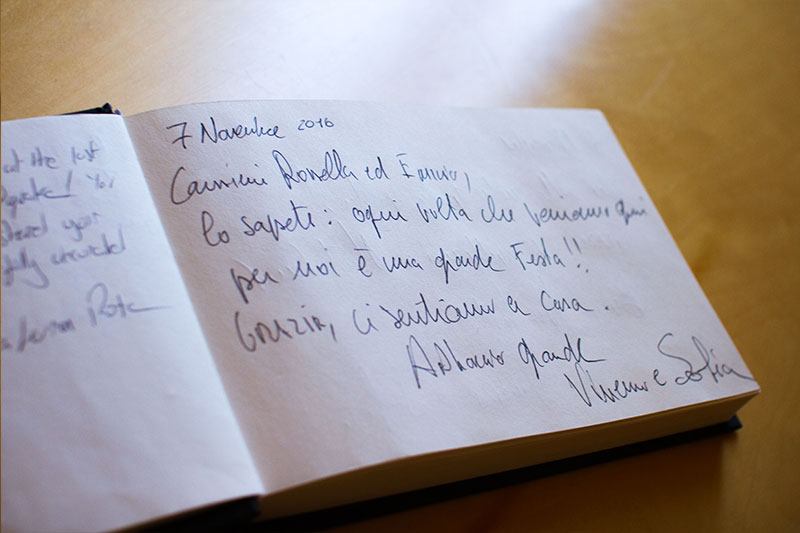 at the last
shared your
fully
7 Novembre 2016
Carissimi Rossella ed Ennio,
lo sapete: ogni volta che veniamo qui
per noi è una grande Festa!!
Grazie, ci sentiamo a casa.
Abbraccio grande
e Sofia